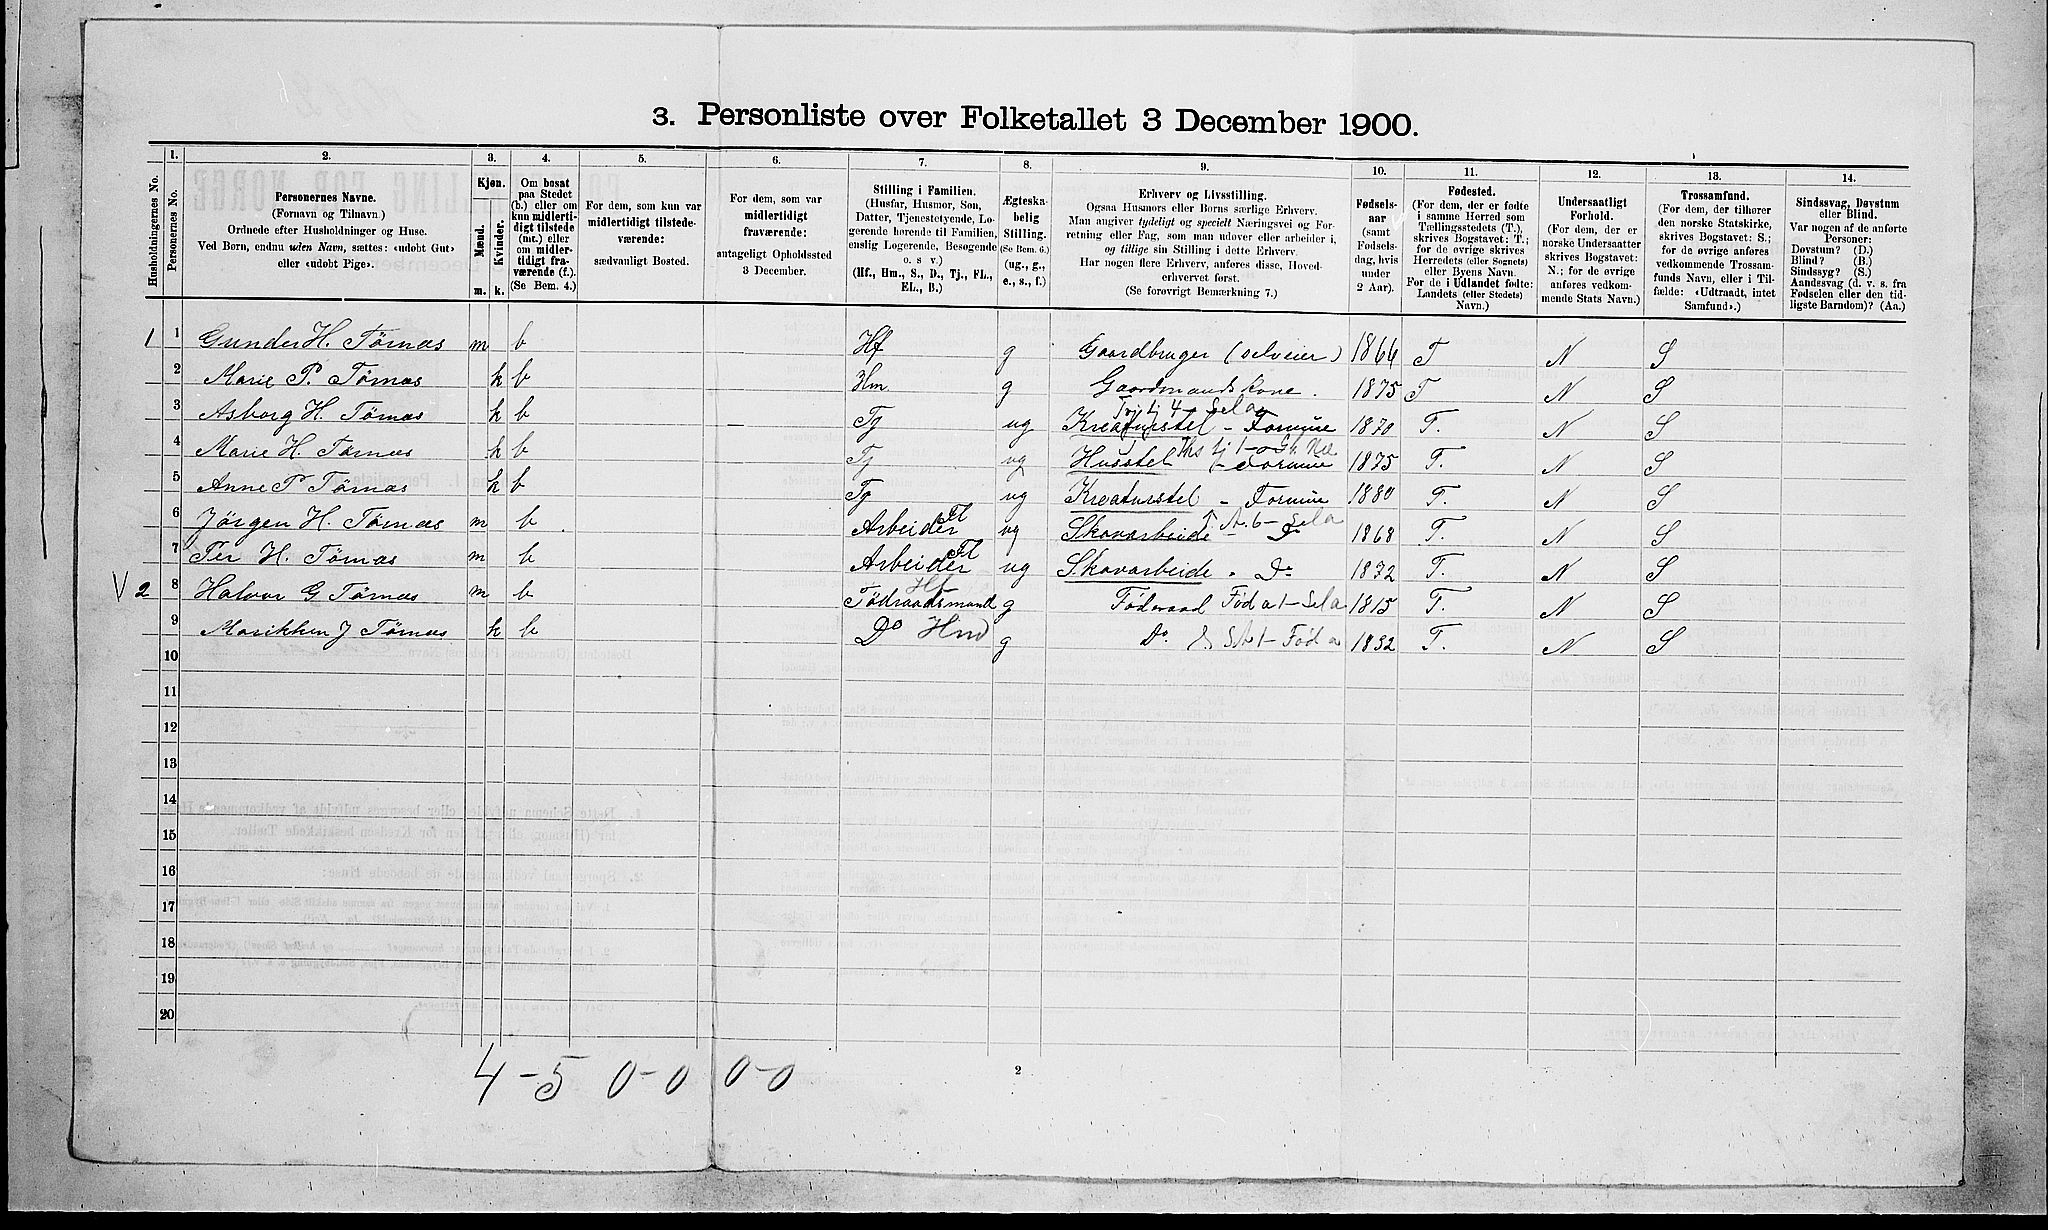 3. Personliste over Folketallet 3 December 1900.
1. 2. 3. 4. 5. 6. 7. 8. 9. 10. 11. 12. 13. 14.
Husholdningernes No.
Personernes No.
Personernes Navne.
(Fornavn og Tilnavn.)
Ordnede efter Husholdninger og Huse.
Ved Børn, endnu uden Navn, sættes: «udøbt Gut»
eller «udøbt Pige».
Kjøn.
Mænd.
Kvinder.
m. k.
Om bosat
paa Stedet
(b.) eller om
kun midlerti-
digt tilstede
(mt.) eller
om midler-
tidigt fra-
værende (f.).
(Se Bem. 4.)
For dem, som kun var
midlertidigt tilstede-
værende:
sædvanligt Bosted.
For dem, som var
midlertidigt
fraværende:
antageligt Opholdssted
3 December.
Stilling i Familien.
(Husfar, Husmor, Søn,
Datter, Tjenestetyende, Lo-
gerende hørende til Familien,
enslig Logerende, Besøgende
o. s v.)
(Hf., Hm., S., D., Tj., FL.,
EL., B.)
Ægteska-
belig
Stilling.
(Se Bem. 6.)
(ug., g.,
e., s., f.)
Erhverv og Livsstilling.
Ogsaa Husmors eller Børns særlige Erhverv.
Man angiver tydeligt og specielt Næringsvei og For-
retning eller Fag, som man udøver eller arbeider i,
og tillige sin Stilling i dette Erhverv.
Har nogen flere Erhverv, anføres disse, Hoved-
erhvervet først.
(Se forøvrigt Bemærkning 7.)
Fødsels-
aar
(samt
Fødsels-
dag, hvis
under
2 Aar).
Fødested.
(For dem, der er fødte
i samme Herred som
Tællingsstedets (T.),
skrives Bogstavet: T.;
for de øvrige skrives
Herredets (eller Sognets)
eller Byens Navn.
For de i Udlandet fødte:
Landets (eller Stedets)
Navn.)
Undersaatligt
Forhold.
(For dem, der er
norske Undersaatter
skrives Bogstavet:
N.; for de øvrige
anføres vedkom-
mende Stats Navn.)
Trossamfund.
(For dem, der tilhører
den norske Statskirke,
skrives Bogstavet: S.;
for de øvrige anføres
vedkommende Trossam-
funds Navn, eller i Til-
fælde: «Udtraadt, intet
Samfund».)
Sindssvag, Døvstum
eller Blind.
Var nogen af de anførte
Personer:
Døvstum? (D.)
Blind? (B.)
Sindssyg? (S.)
Aandssvag (d. v. s. fra
Fødselen eller den tid-
ligste Barndom)? (Aa.)
1 1 Gunder H. Tørnæs m b Hf g Gaardbruger (selveier) 1864 T N S
2 Marie P. Tørnæs k b Hm g Gaardmandskone. 1875 T N S
3 Asborg H. Tørnæs k b Tj ug Kreaturstel - Formue 1870 T. N S
4 Marie H. Tørnæs k b Tj ug Husstel - Formue 1875 T. N S
5 Anne P Tørnæs k b Tj ug Kreaturstel - Formue 1880 T. N S
6 Jørgen H. Tørnæs m b Arbeider Fl ug Skovarbeide - Do 1868 T. N S
7 Per H. Tørnæs m b Arbeider Fl ug Skovarbeide " Do 1872 T. N S
V 2 8 Halvor G Tørnæs m b Hf Fødraadsmand g Føderaad Fød a 1 - Sela 1815 T. N S
9 Marikken J Tørnæs k b Do Hm g Do. 1832 T. N S
10
11
12
13
14
15
16
17
18
19
20
4 - 5 0 - 0 0 - 0
2